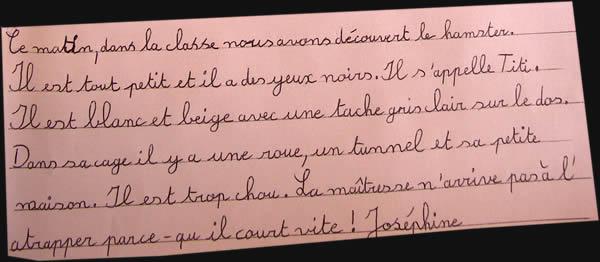 Ce matin, dans la classe nous avons découvert le hamster.
Il est tout petit et il a des yeux noirs. Il s'appelle Titi.
Il est blanc et beige avec une tache gris clair sur le dos.
Dans sa cage il y a une roue, un tunnel et sa petite
maison. Il est trop chou. La maîtresse n'arrive pas à l'
atrapper parce-qu il court vite ! Joséphine